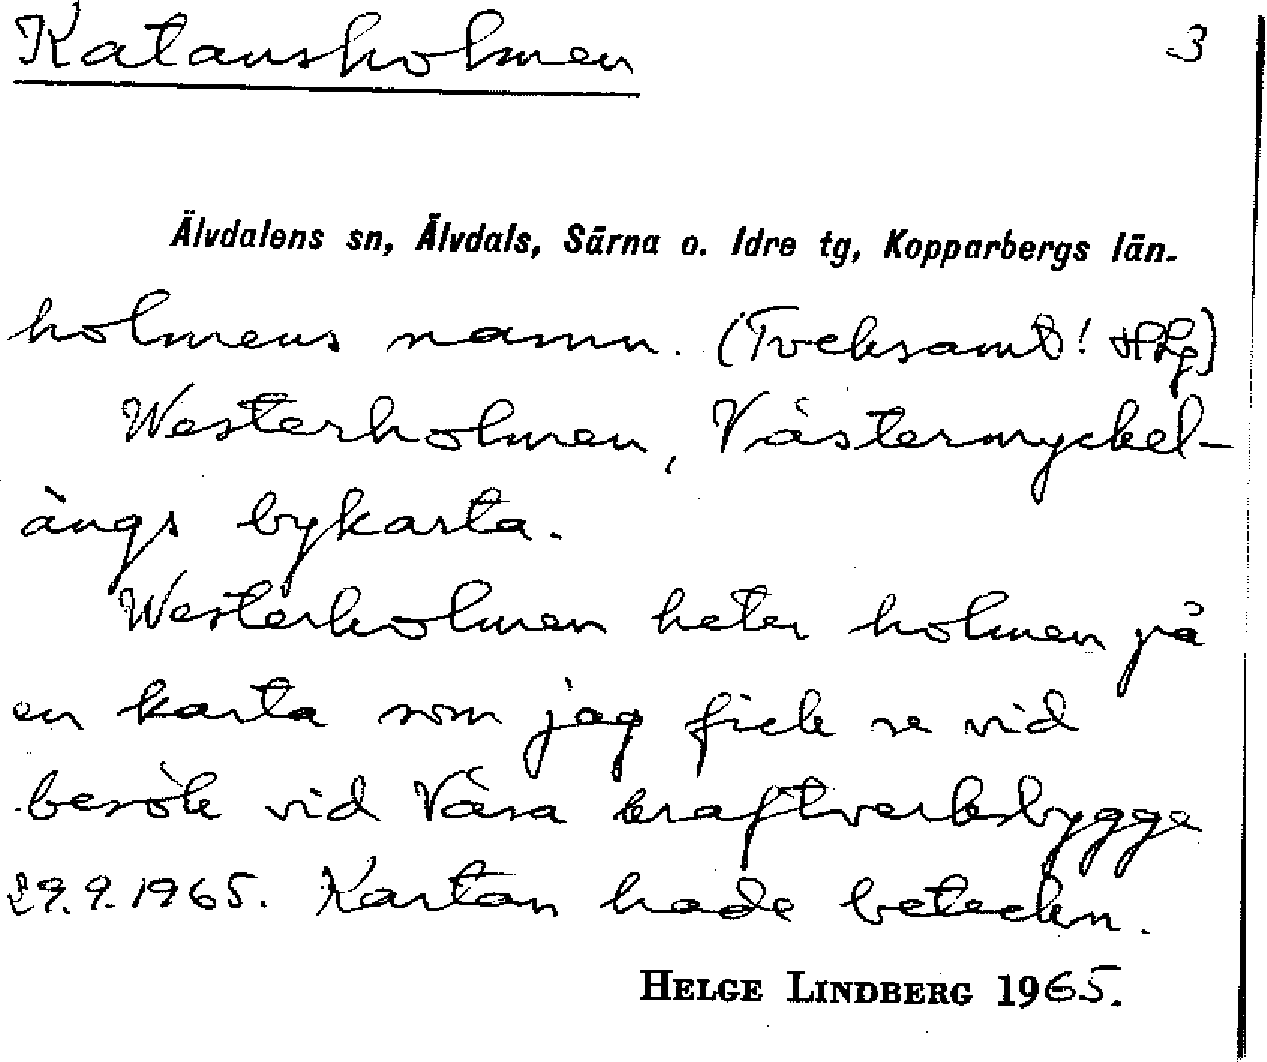 Katansholmen 3
Älvdalens sn, Älvdals, Särna o. Idre tg, Kopparbergs län.
holmens namn. (Tveksamt! HLg)
Westerholmen, Västermyckel-
ängs bykarta.
Westerholmen heter holmen på
en karta som jag fick se vid
besök vid Våsa kraftverksbygge
29.9.1965. Kartan hade beteckn.
HELGE LINDBERG 1965.